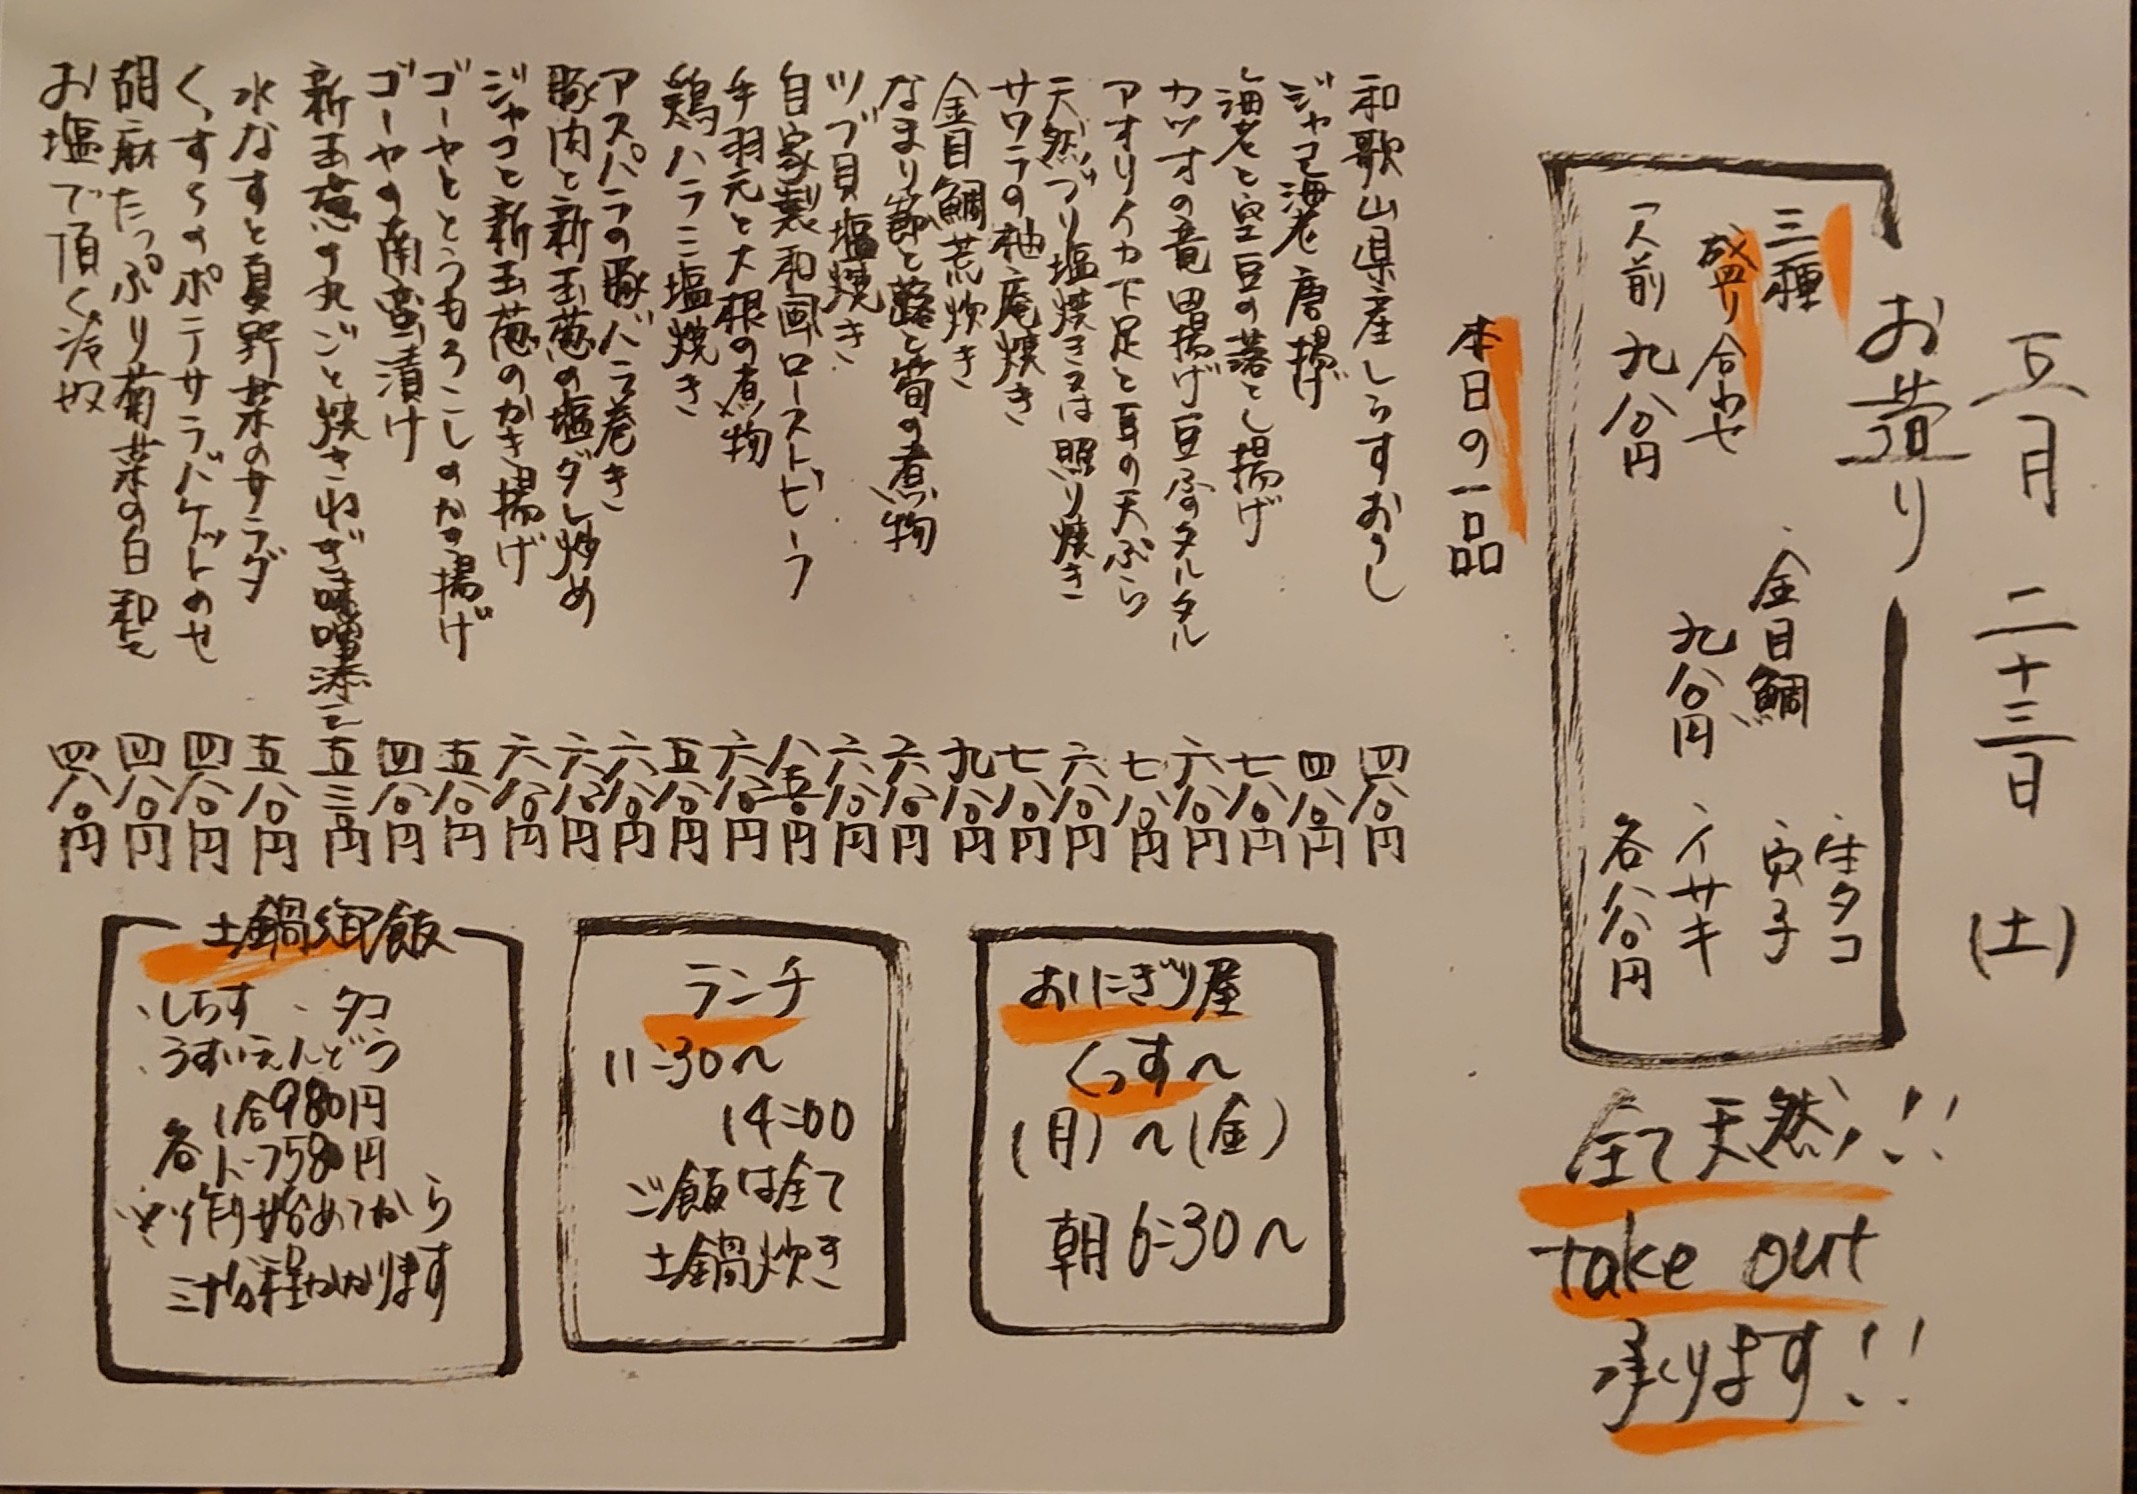 五月二十三日(土)
お造り
三種
盛り合わせ
一人前 九八〇円
金目鯛
九八〇円
生タコ
穴子
イサキ
各八八〇円
全て天然!!
take out
承ります!!
本日の一品
和歌山県産しらすおろし 四八〇円
ジャコ海老唐揚げ 四八〇円
海老と空豆の落とし揚げ 七八〇円
カツオの竜田揚げ豆ふのタルタル 六八〇円
アオリイカ下足と耳の天ぷら 七八〇円
天然ブリ塩焼き又は照り焼き 六八〇円
サワラの柚庵焼き 七八〇円
金目鯛荒炊き 九八〇円
なまり節と蕗と筍の煮物 六八〇円
ツブ貝塩焼き 六八〇円
自家製和風ローストビーフ 八五〇円
手羽元と大根の煮物 六八〇円
鶏ハラミ塩焼き 五八〇円
アスパラの豚バラ巻き 六八〇円
豚肉と新玉葱の塩ダレ炒め 六八〇円
ジャコと新玉葱のかき揚げ 六八〇円
ゴーヤととうもろこしのかき揚げ 五八〇円
ゴーヤの南蛮漬け 四八〇円
新玉葱の丸ごと焼きねぎ味噌添え 五三〇円
水なすと夏野菜のサラダ 五八〇円
くっす〜のポテサラバケットのせ 四八〇円
胡麻たっぷり菊菜の白和え 四八〇円
お塩で頂く冷奴 四八〇円
おにぎり屋
くっす〜
(月)〜(金)
朝6:30〜
ランチ
11:30〜
14:00
ご飯は全て
土鍋炊き
土鍋御飯
、しらす 、タコ
、うすいえんどう
各 1合980円
ハーフ580円
※作り始めてから
三十分程かかります